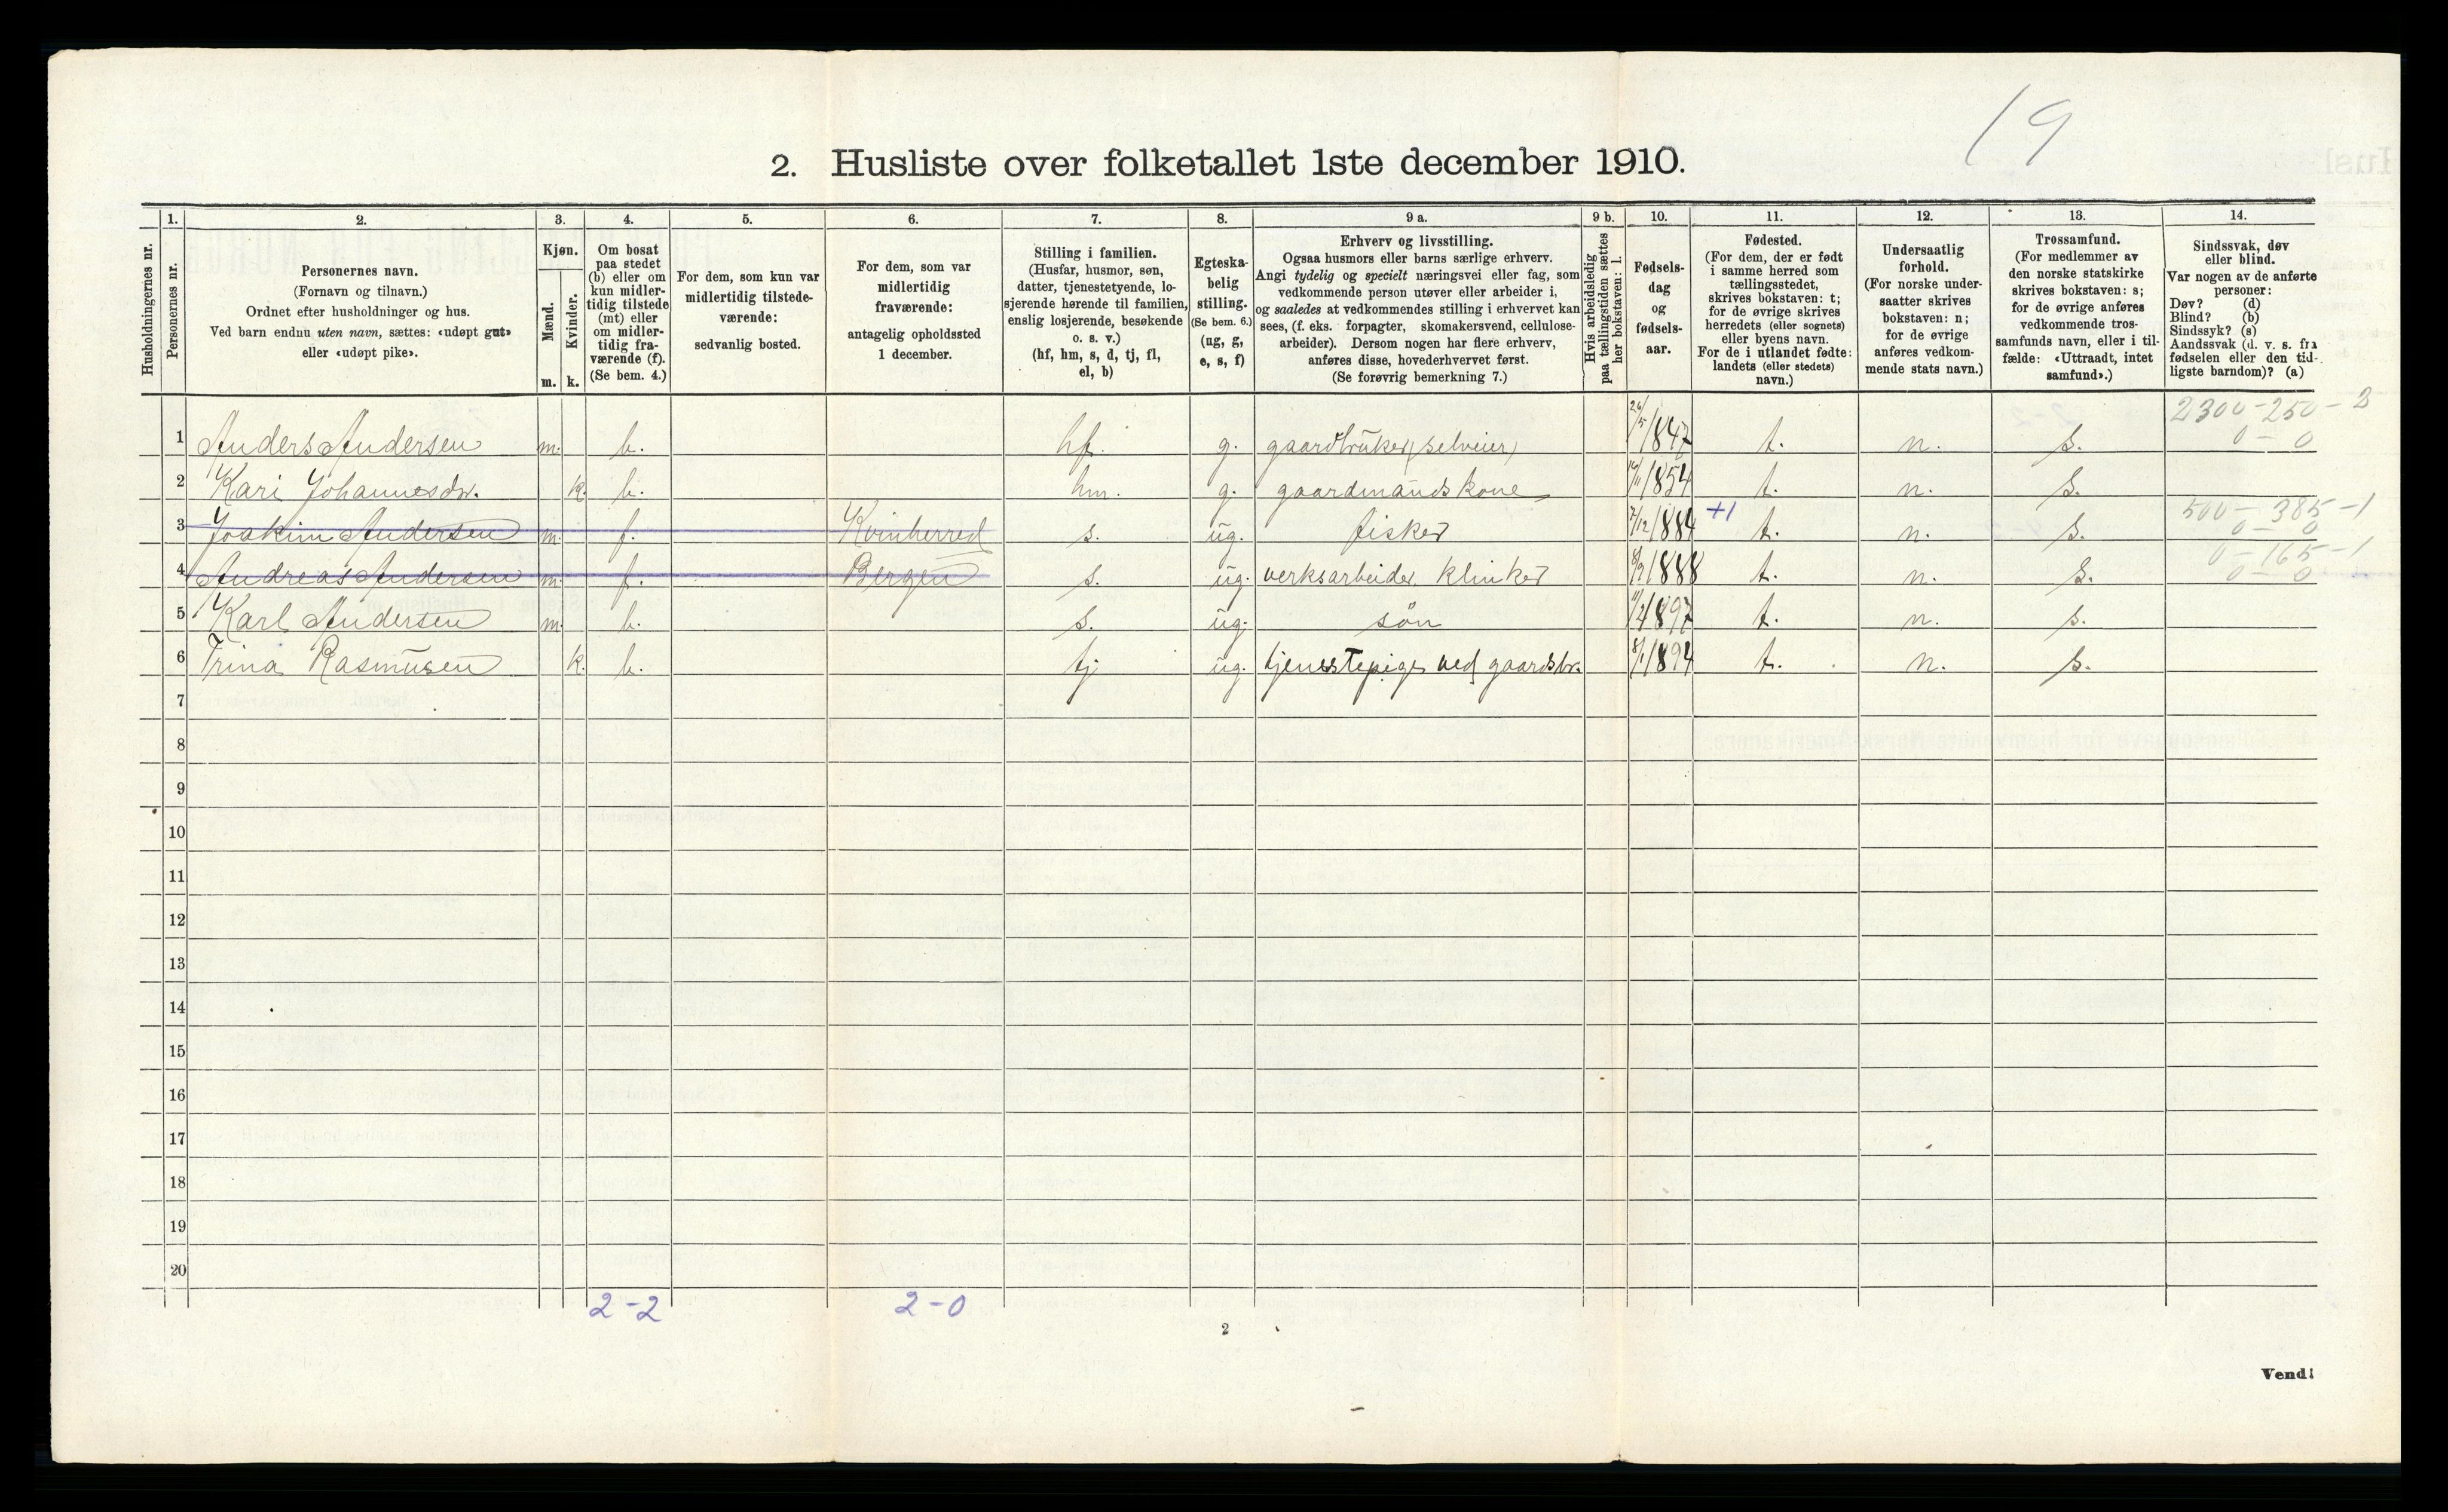 19
2. Husliste over folketallet 1ste december 1910.
Husholdningernes nr.
1. Personernes nr.
2. Personernes navn.
(Fornavn og tilnavn.)
Ordnet efter husholdninger og hus.
Ved barn endnu uten navn, sættes: «udøpt gut»
eller «udøpt pike».
3. Kjøn.
Mænd. m.
Kvinder. k.
4. Om bosat
paa stedet
(b) eller om
kun midler-
tidig tilstede
(mt) eller
om midler-
tidig fra-
værende (f).
(Se bem. 4.)
5. For dem, som kun var
midlertidig tilstede-
værende:
sedvanlig bosted.
6. For dem, som var
midlertidig
fraværende:
antagelig opholdssted
1 december.
7. Stilling i familien.
(Husfar, husmor, søn,
datter, tjenestetyende, lo-
sjerende hørende til familien,
enslig losjerende, besøkende
o. s. v.)
(hf, hm, s, d, tj, fl,
el, b)
8. Egteska-
belig
stilling.
(Se bem. 6.)
(ug, g,
e, s, f)
9 a. Erhverv og livsstilling.
Ogsaa husmors eller barns særlige erhverv.
Angi tydelig og specielt næringsvei eller fag, som
vedkommende person utøver eller arbeider i,
og saaledes at vedkommendes stilling i erhvervet kan
sees, (f. eks. forpagter, skomakersvend, cellulose-
arbeider). Dersom nogen har flere erhverv,
anføres disse, hovederhvervet først.
(Se forøvrig bemerkning 7.)
9 b. Hvis arbeidsledig
paa tællingstiden sættes
her bokstaven: l.
10. Fødsels-
dag
og
fødsels-
aar.
11. Fødested.
(For dem, der er født
i samme herred som
tællingsstedet,
skrives bokstaven: t;
for de øvrige skrives
herredets (eller sognets)
eller byens navn.
For de i utlandet fødte:
landets (eller stedets)
navn.)
12. Undersaatlig
forhold.
(For norske under-
saatter skrives
bokstaven: n;
for de øvrige
anføres vedkom-
mende stats navn.)
13. Trossamfund.
(For medlemmer av
den norske statskirke
skrives bokstaven: s;
for de øvrige anføres
vedkommende tros-
samfunds navn, eller i til-
fælde: «Uttraadt, intet
samfund».)
14. Sindssvak, døv
eller blind.
Var nogen av de anførte
personer:
Døv? (d)
Blind? (b)
Sindssyk? (s)
Aandssvak (d. v. s. fra
fødselen eller den tid-
ligste barndom)? (a)
2300-250-2
0-0
1 Anders Andersen m. b. hf. g. gaardbruker (selveier) 26/5 1847 t. n. s.
2 Kari Johannesdr. k. b. hm. g. gaardmandskone 1854 t. n. s.
500-385-1
0-0
3 Joakim Andersen m. f. Kvinherred s. ug. fisker 7/12 1884 +1 t. n. s.
0-165-1
0-0
4 Andreas Andersen m. f. Bergen s. ug. verksarbeider klinker 1888 t. n. s.
5 Karl Andersen m. b. s. ug. søn 11/2 1897 t. n. s.
6 Trina Rasmusen k. b. tj ug. tjenestepige ved gaardsbr. 8/1 1894 t. n. s.
7
8
9
10
11
12
13
14
15
16
17
18
19
20
2-2 2-0
2
Vend!